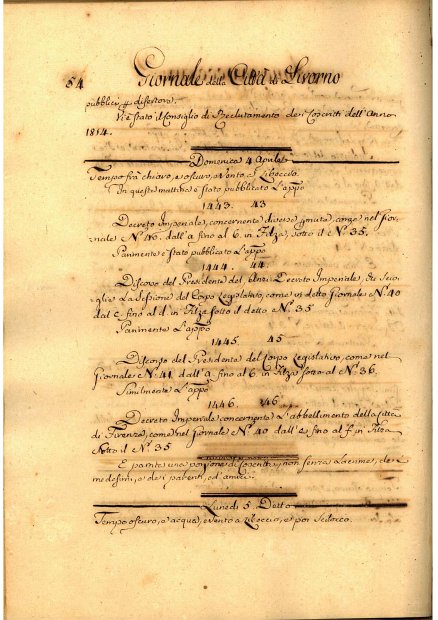 54 Giornale della Città di Livorno
pubblici disertore.
Vi è stato il Consiglio di Reclutamento dei Coscritti dell'Anno
1814.
Domenica 4 Aprile
Tempo frà chiaro, e oscuro, e Vento à Liboccio.
In questa mattina è stato pubblicato L'app.o
1443. 43
Decreto Imperiale, concernente diverse cause nel Gior-
nale N.o 46. dall'a fino al 6. in Filza, sotto il N.o 35.
Parimente è stato pubblicato L'app.o
1444. 44
Discorso del Presidente del Decreto Imperiale, di
La Sessione del Corpo Legislativo, come in detto Giornale N.o 40
dal c. fino al d. in Filza sotto il detto N.o 35
Parimente L'app.o
1445. 45
Discorso del Presidente del Corpo Legislativo, come nel
Giornale N.o 41. dall'a fino al 6. in Filza sotto al N.o 36.
Similmente L'app.o
1446. 46
Decreto Imperiale concernente L'abbellimento della Città
di Firenze, come nel Giornale N.o 40 dall'e fino al f. in Filza
Sotto il N.o 35
È partita una porzione di Coscritti, non senza Lacrime, de
medesimi, e dei parenti, ed amici.
Lunedì 5. Detto
Tempo oscuro, e acqua, e Vento a Liboccio, e poi Scilocco.